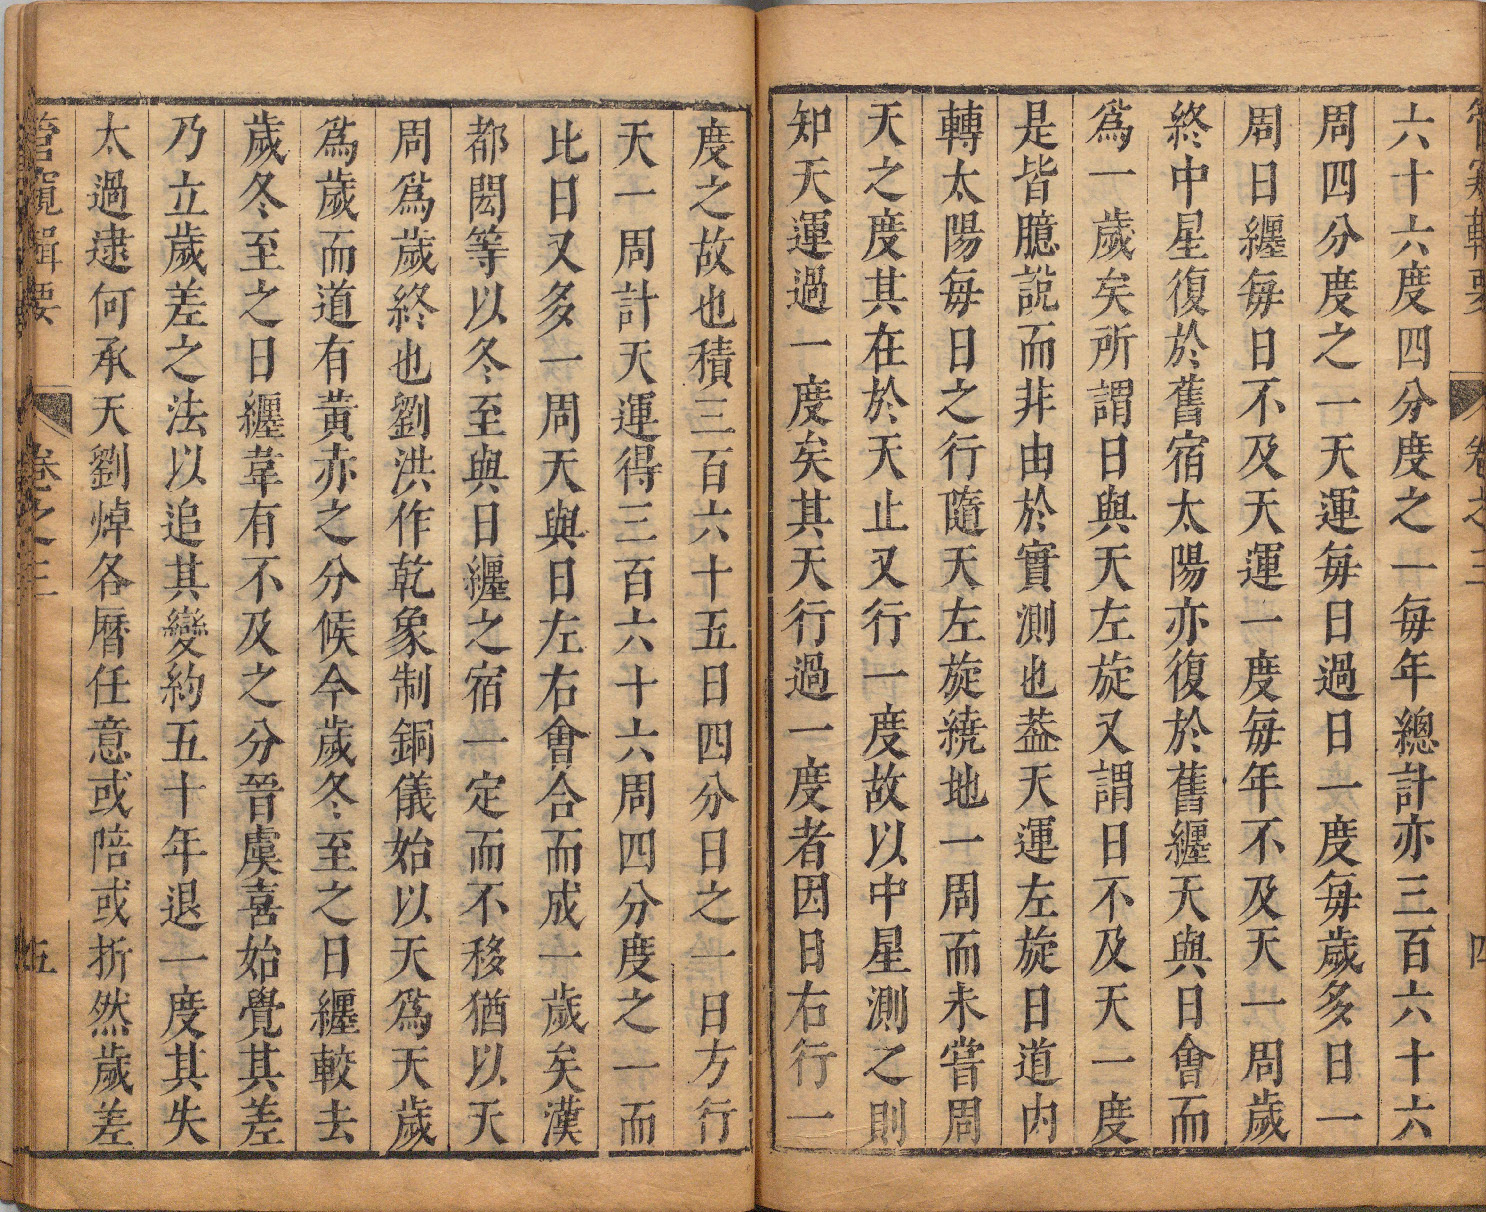 管窺輯要 卷之三 四
六十六度四分度之一每年總計亦三百六十六
周四分度之一天運每日過日一度每歲多日一
周日纏每日不及天運一度每年不及天一周歲
終中星復於舊宿太陽亦復於舊纏天與日會而
爲一歲矣所謂日與天左旋又謂日不及天一度
是皆臆說而非由於實測也葢天運左旋日道內
轉太陽每日之行隨天左旋繞地一周而未嘗周
天之度其在於天止又行一度故以中星測之則
知天運過一度矣其天行過一度者因日右行一
度之故也積三百六十五日四分日之一日方行
天一周計天運得三百六十六周四分度之一而
比日又多一周天與日左右會合而成一歲矣漢
都閎等以冬至與日纏之宿一定而不移猶以天
周爲歲終也劉洪作乾象制銅儀始以天爲天歲
爲歲而道有黃赤之分候今歲冬至之日纏較去
歲冬至之日纏葦有不及之分晉虞喜始覺其差
乃立歲差之法以追其變約五十年退一度其失
太過逮何承天劉焯各曆任意或陪或折然歲差
管窺輯要 卷之三 五